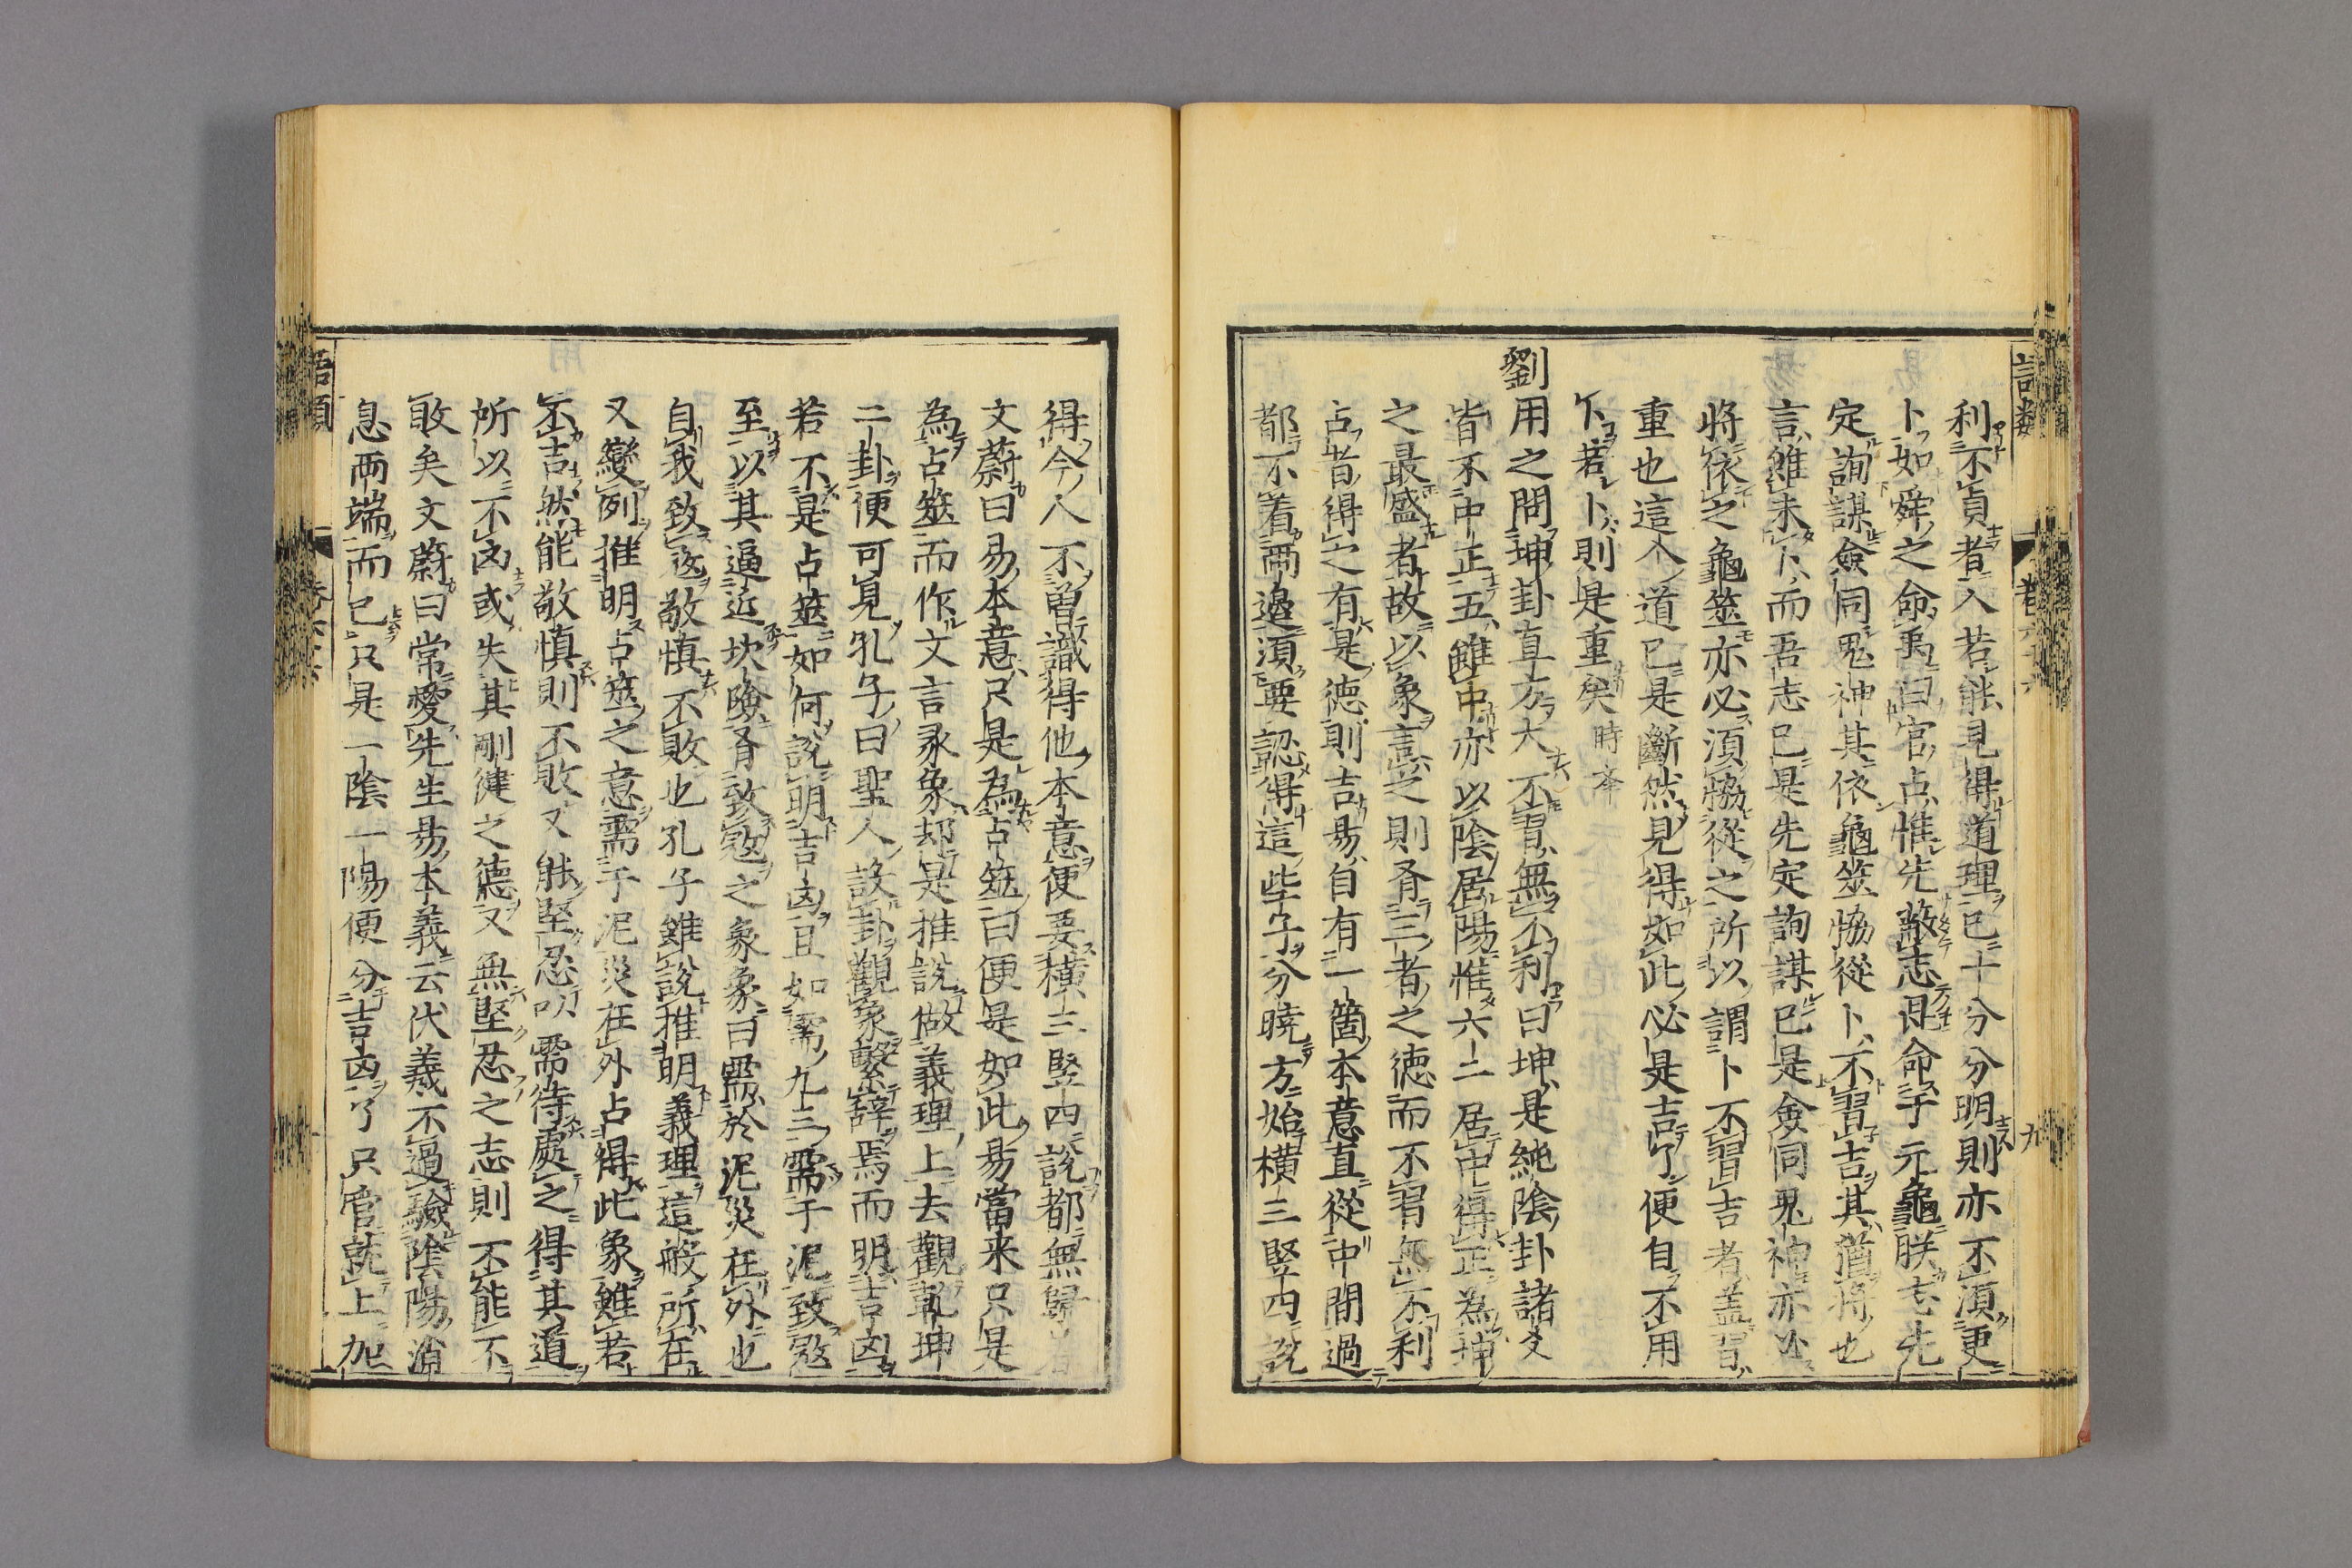 利不貞者人若能見得道理已十分分明則亦不須更
卜如舜之命禹曰官占惟先蔽志昆命于元龜朕志先
定詢謀僉同鬼神其依龜筮協從卜不習吉其猶將也
言雖未卜而吾志已是先定詢謀已是僉同鬼神亦必
將依之龜筮亦必須協從之所以謂卜不習吉者蓋習
重也這个道已是斷然見得如此必是吉了便自不用
卜若卜則是重矣時举
劉用之問坤卦直方大不習無不利曰坤是純陰卦諸爻
皆不中正五雖中亦以陰居陽惟六二居中得正為坤
之最盛者故以象言之則有三者之徳而不習無不利
占者得之有是徳則吉易自有一箇本意直從中間過
都不着兩邉須要認得這些子分曉方始横三竪四説
得今人不曽識得他本意便要横三竪四説都無歸着
文蔚曰易本意只是為占筮曰便是如此易當来只是
為占筮而作文言彖象却是推說做義理上去觀乾坤
二卦便可見孔子曰聖人設卦觀象繫辭焉而明吉凶
若不是占筮如何說明吉凶且如需九三需于泥致㓂
至以其逼近坎險有致㓂之象象曰需於泥災在外也
自我致㓂敬慎不敗也孔子雖說推明義理這般所在
又變列推明占筮之意需于泥災在外占得此象雖若
不吉然能敬慎則不敗又能堅忍以需待處之得其道
所以不凶或失其剛健之德又無堅忍之志則不能不
敗矣文蔚曰常愛先生易本義云伏羲不過驗陰陽消
息兩端而已只是一陰一陽便分吉凶了只管就上加
語類
九
語類